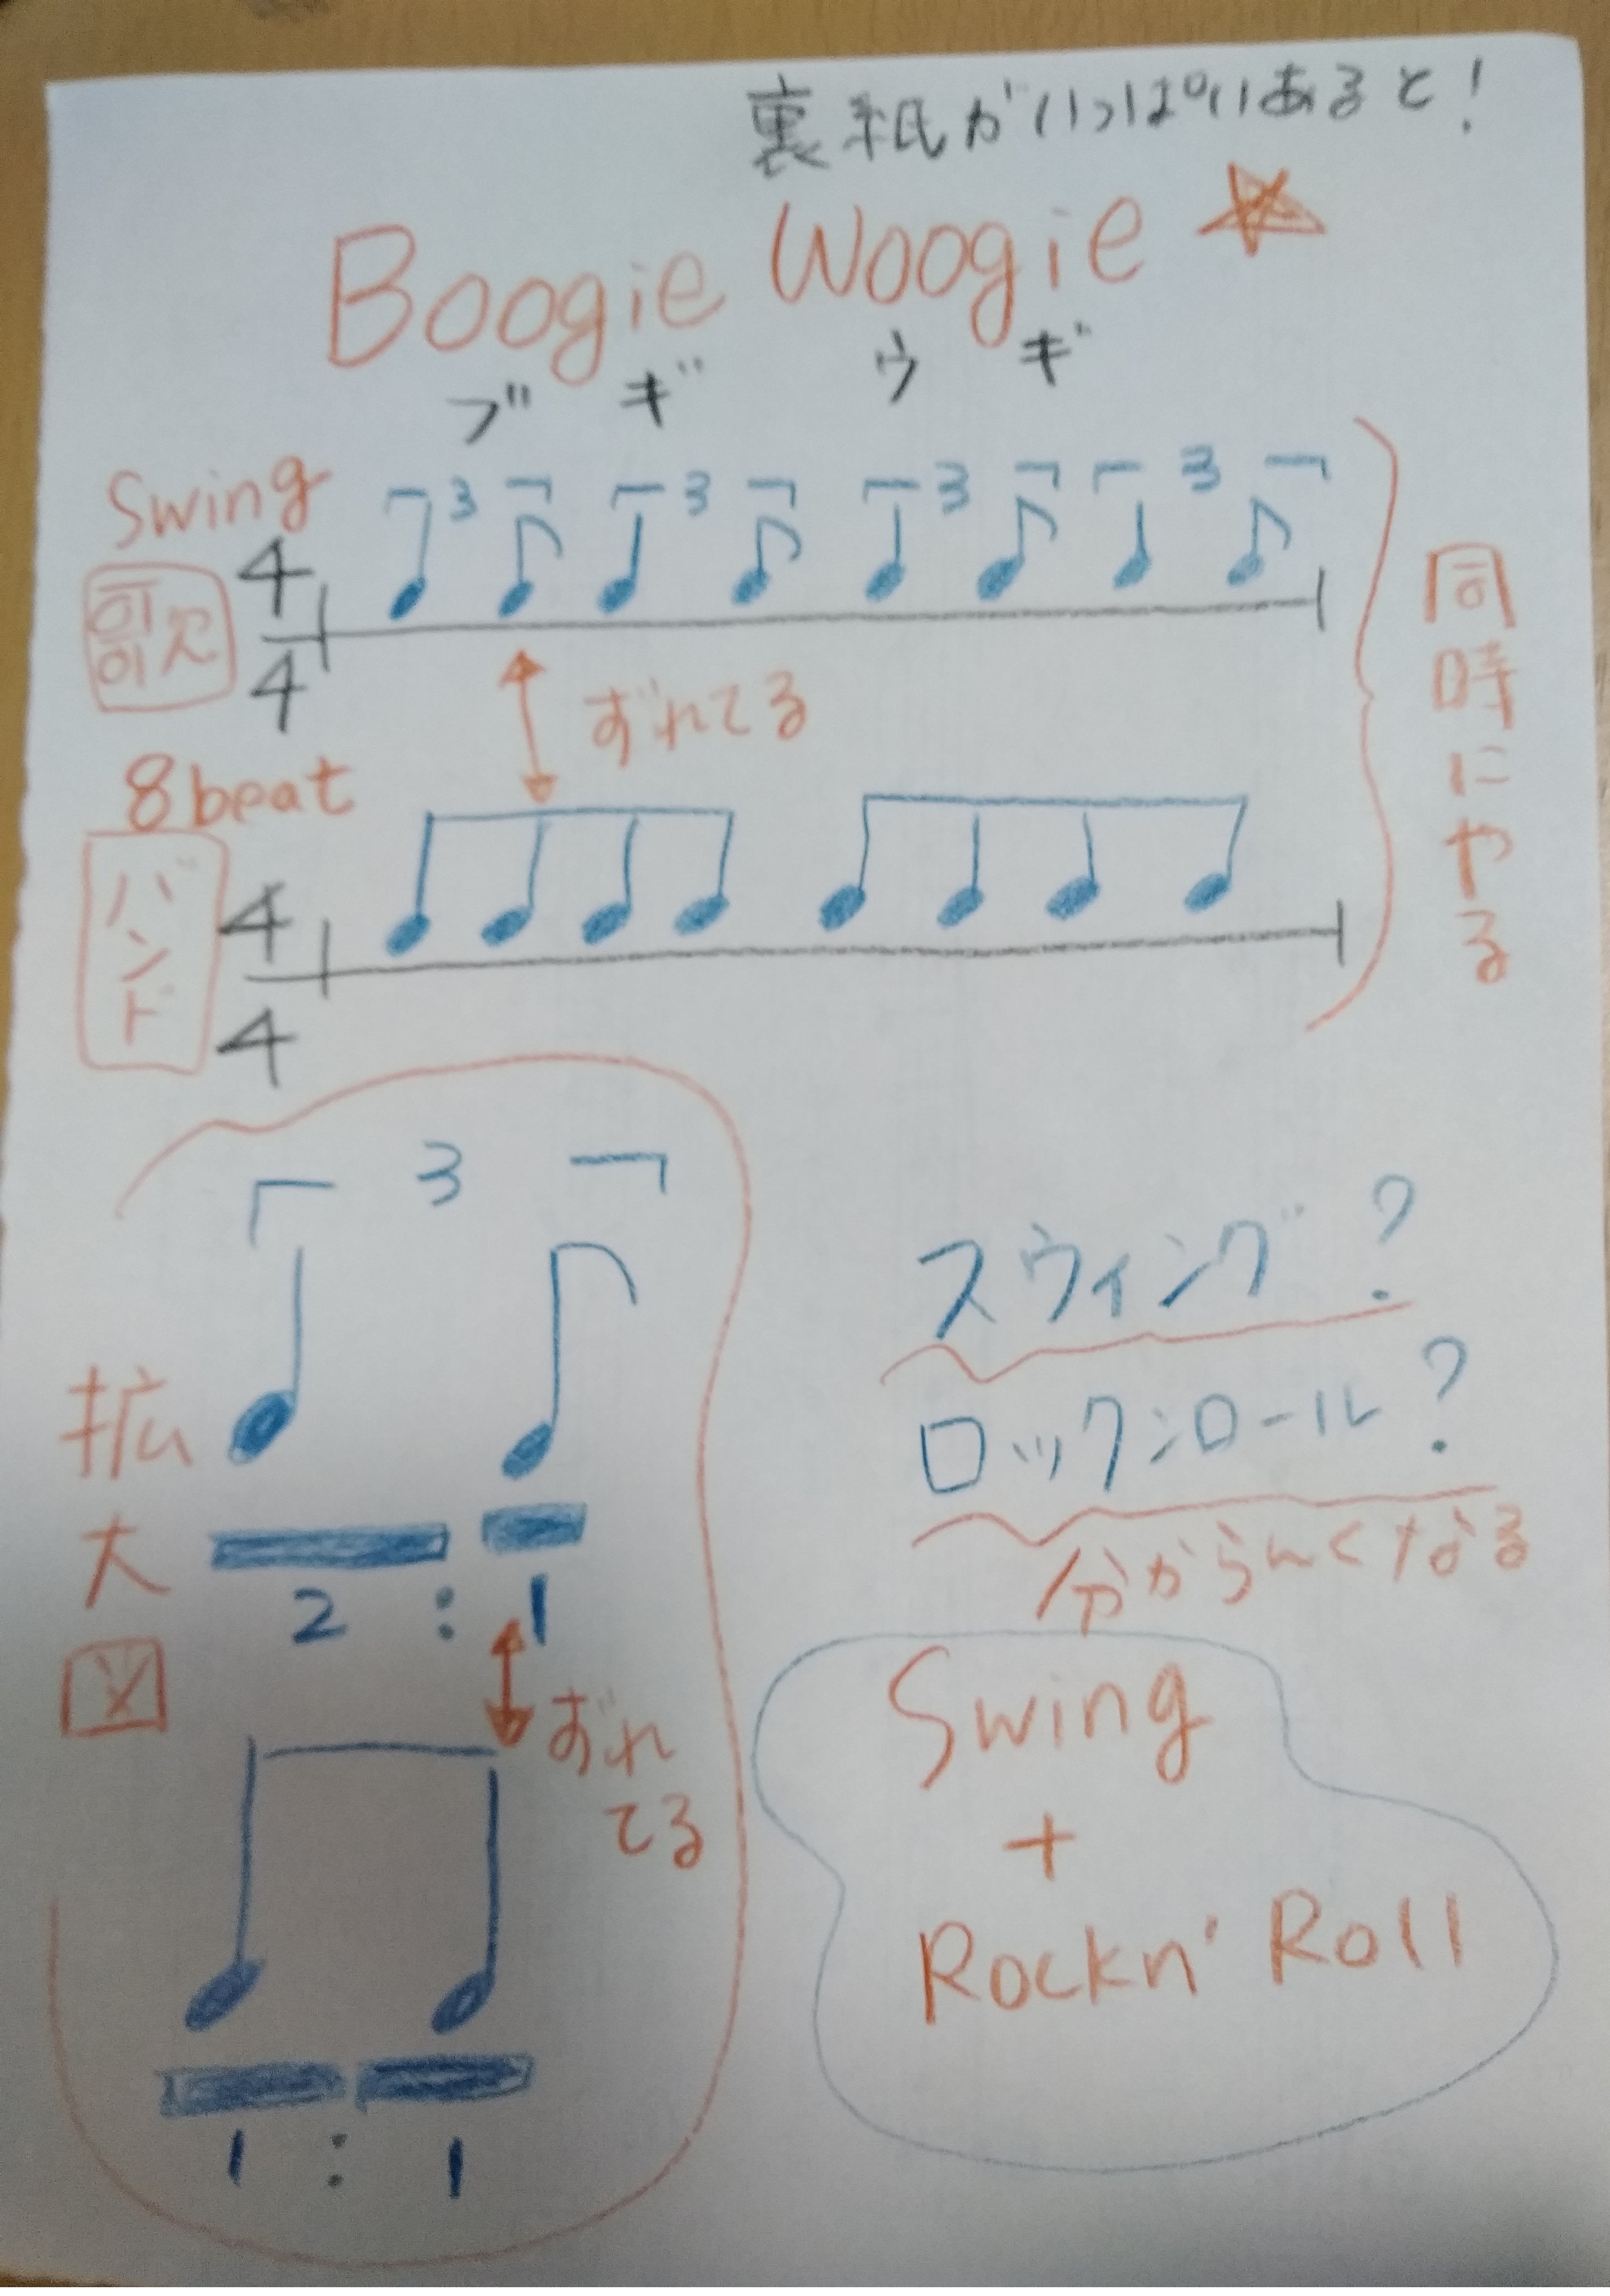 裏紙がいっぱいあると!
Boogie Woogie
ブギ ウギ
Swing
歌
4
4
3 3 3 3
ずれてる
8beat
バンド
4
4
同時にやる
拡大図
3
2 : 1
ずれ
てる
1 : 1
スウィング?
ロックンロール?
分からんくなる
Swing
+
Rockn' Roll